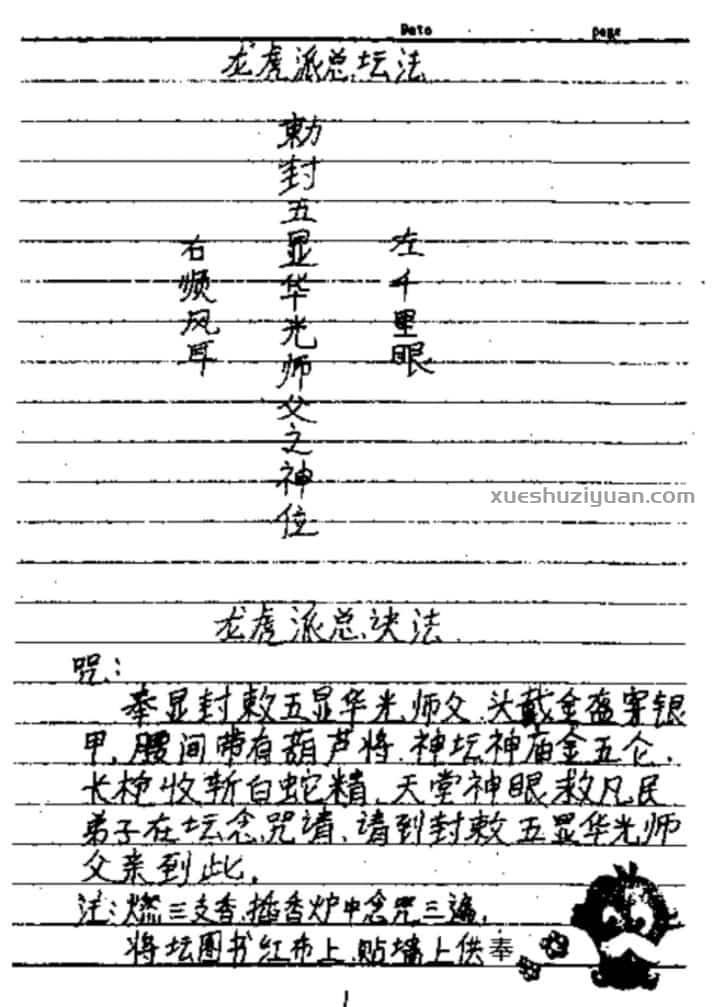 Date page
龙虎派总坛法
勅封五显华光师父之神位
左千里眼
右顺风耳
xueshuziyuan.com
龙虎派总诀法
咒:
奉显封敕五显华光师父.头戴金盔穿银
甲,腰间带有葫芦将.神坛神庙金五仑.
长枪收斩白蛇精.天堂神眼救凡民
弟子在坛念咒请、请到封敕五显华光师
父亲到此.
注:燃三支香,插香炉中念咒三遍,
将坛图书红布上.贴墙上供奉
1